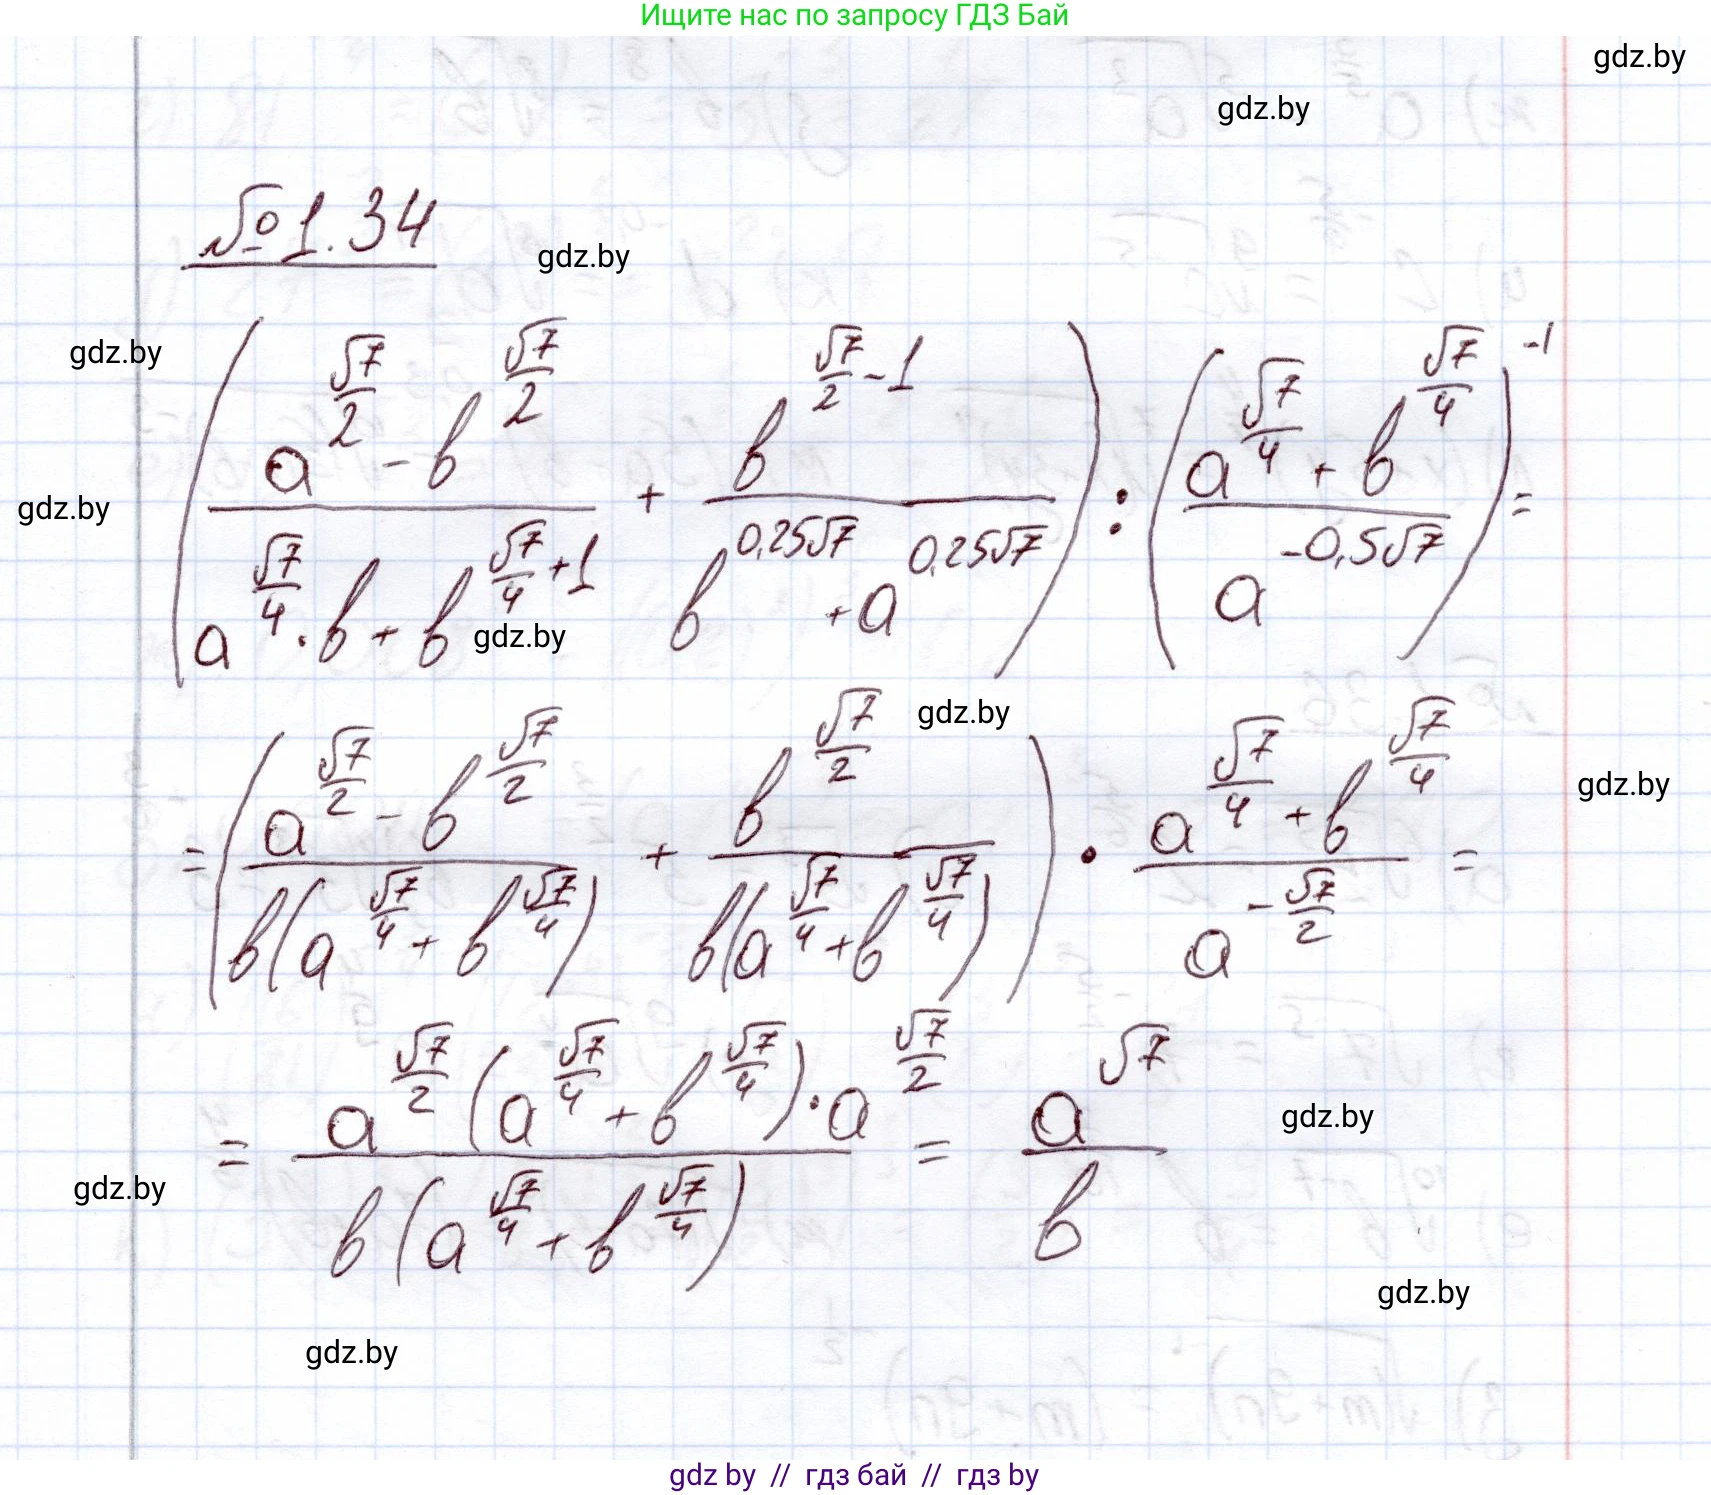 Ищите нас по запросу ГДЗ Бай
gdz.by
gdz.by
№ 1.34
gdz.by
gdz.by
(a^(√7/2) - b^(√7/2))/(a^(√7/4) · b + b^(√7/4 + 1)) + b^(√7/2 - 1)/(b^(0,25√7) + a^(0,25√7))) : ((a^(√7/4) + b^(√7/4))/a^(-0,5√7))^(-1) =
gdz.by
gdz.by
gdz.by
= ((a^(√7/2) - b^(√7/2))/(b(a^(√7/4) + b^(√7/4))) + b^(√7/2)/(b(a^(√7/4) + b^(√7/4)))) · (a^(√7/4) + b^(√7/4))/a^(-√7/2) =
gdz.by
= (a^(√7/2) (a^(√7/4) + b^(√7/4)) · a^(√7/2))/(b(a^(√7/4) + b^(√7/4))) = a^(√7)/b
gdz.by
gdz.by
gdz.by
gdz.by
gdz by // гдз бай // гдз by